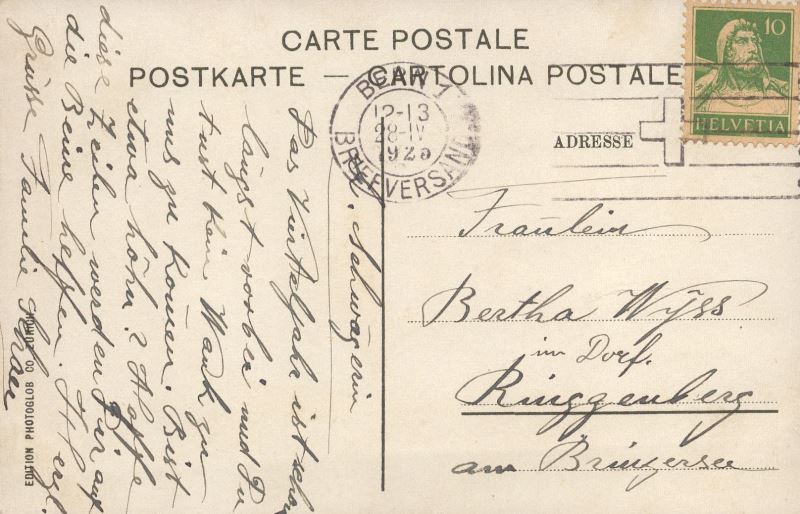 CARTE POSTALE
POSTKARTE — CARTOLINA POSTALE
BERN 1
12-13
28·IV
1925
BRIEFVERSAND
10
HELVETIA
ADRESSE
Fräulein
Bertha Wyss
im Dorf.
Ringgenberg
am Brinzersee
L. Schwägerin
Das Vierteljahr ist schon
längst vorbei und Du
tust kein Wank zu
uns zu komen. Bist
etwa höhn? Hoffe
diese Zeilen werden Dir auf
die Beine helfen. Herzl.
Grüsse Familie
EDITION PHOTOGLOB CO. ZÜRICH